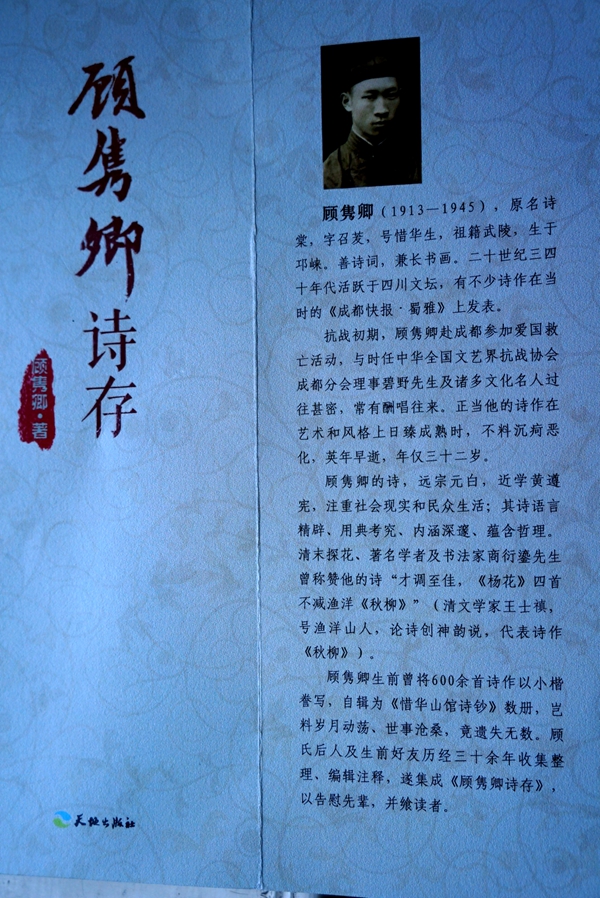 顾隽卿诗存
顾隽卿·著
天地出版社
顾隽卿（1913—1945），原名诗
棠，字召茇，号惜华生，祖籍武陵，生于
邛崃。善诗词，兼长书画。二十世纪三四
十年代活跃于四川文坛，有不少诗作在当
时的《成都快报·蜀雅》上发表。
抗战初期，顾隽卿赴成都参加爱国救
亡活动，与时任中华全国文艺界抗战协会
成都分会理事碧野先生及诸多文化名人过
往甚密，常有酬唱往来。正当他的诗作在
艺术和风格上日臻成熟时，不料沉疴恶
化，英年早逝，年仅三十二岁。
顾隽卿的诗，远宗元白，近学黄遵
宪，注重社会现实和民众生活；其诗语言
精辟、用典考究、内涵深邃、蕴含哲理。
清末探花、著名学者及书法家商衍鎏先生
曾称赞他的诗“才调至佳，《杨花》四首
不减渔洋《秋柳》”（清文学家王士禛，
号渔洋山人，论诗创神韵说，代表诗作
《秋柳》）。
顾隽卿生前曾将600余首诗作以小楷
誊写，自辑为《惜华山馆诗钞》数册，岂
料岁月动荡、世事沧桑，竟遗失无数。顾
氏后人及生前好友历经三十余年收集整
理、编辑注释，遂集成《顾隽卿诗存》，
以告慰先辈，并飨读者。